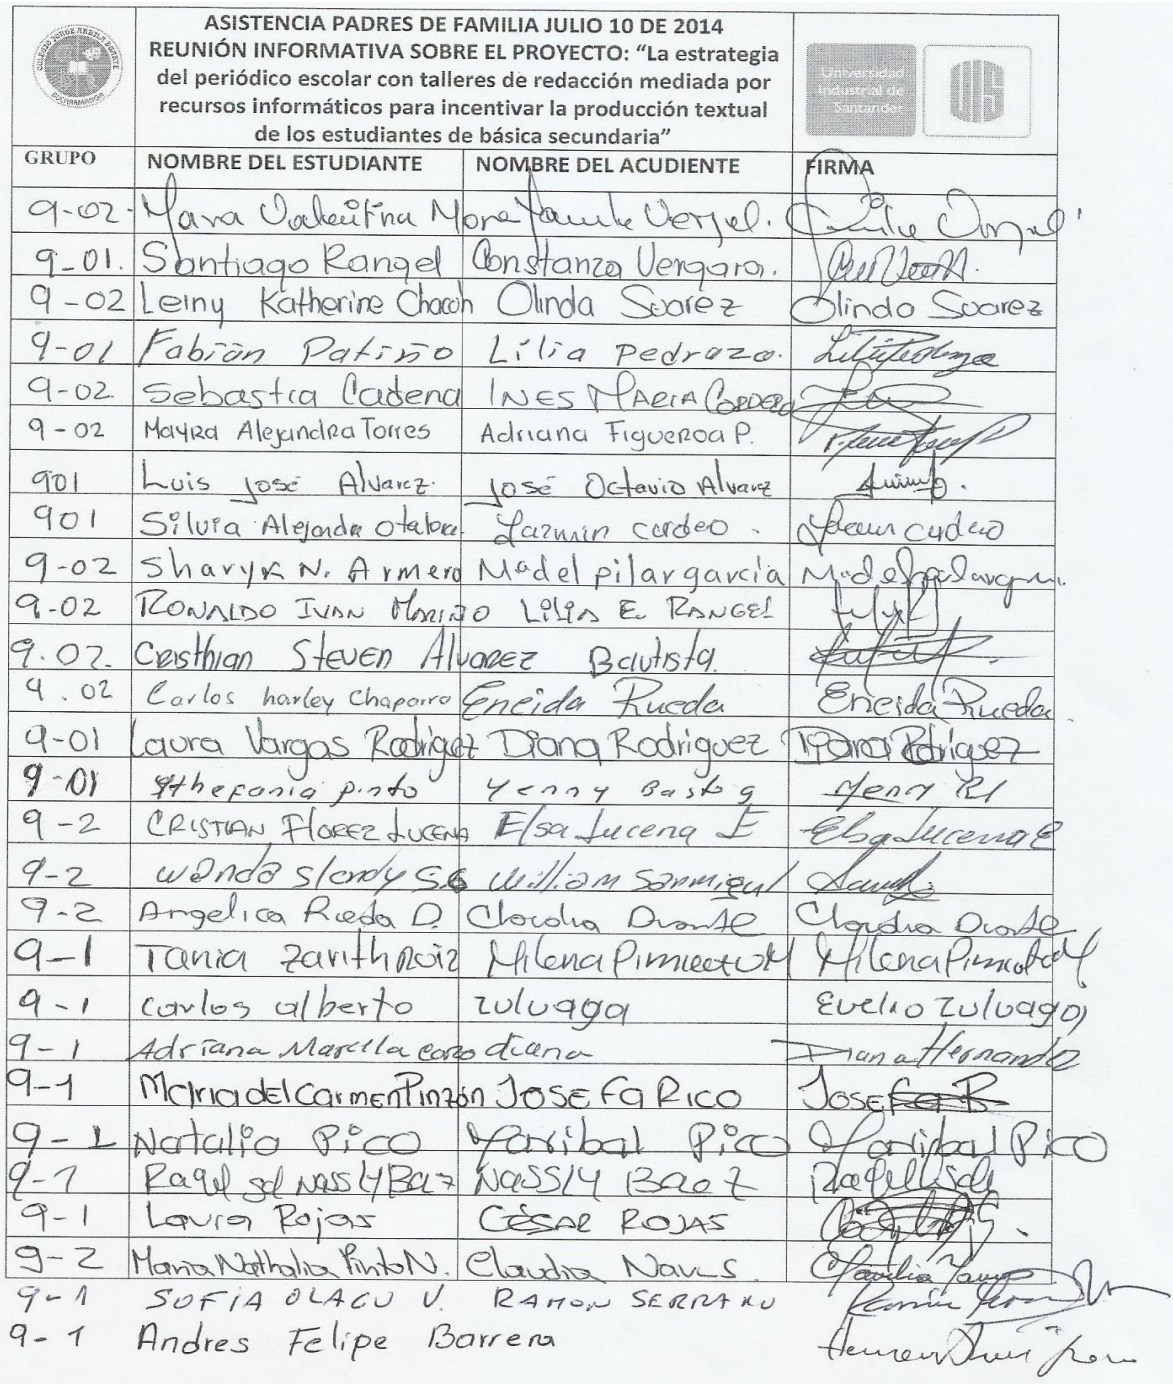 ASISTENCIA PADRES DE FAMILIA JULIO 10 DE 2014
REUNIÓN INFORMATIVA SOBRE EL PROYECTO: “La estrategia
del periódico escolar con talleres de redacción mediada por
recursos informáticos para incentivar la producción textual
de los estudiantes de básica secundaria”
Universidad
Industrial de
Santander
UIS
GRUPO NOMBRE DEL ESTUDIANTE NOMBRE DEL ACUDIENTE FIRMA
9-02 Valentina
9-01. Santiago Rangel Constanza Vergara.
9-02 Leiny Katherine Chacón Olinda Suarez Olinda Suarez
9-01 Fabián Patiño Lilia Pedrazo.
9-02 Sebastia Cadena INES MARIA CORDERO
9-02 Mayra Alejandra Torres Adriana Figueroa P.
901 Luis José Alvarez. José Octavio Alvarez
901 Silvia Alejandra Otalora Yazmin
9-02 Sharyk N. Armero Ma del pilar garcía
9-02 RONALDO IVAN MARIÑO LILIA E. RANGEL
9.02. Cristhian Steven Alvarez Bautista.
9.02 Carlos harley Chaparro Eneida Rueda Eneida Rueda
9-01 Laura Vargas Rodrigez Diana Rodriguez Diana Rodriguez
9-01 pinto Yenny
9-2 CRISTIAN FLOREZ LUCENA Elsa Lucena E Elsa Lucena E
9-2 William Sanmiguel
9-2 Angelica Rueda D. Claudia Duarte Claudia Duarte
9-1 Tania Zarith Ruiz Milena Milena
9-1 Carlos alberto zuluaga Evelio zuluaga
9-1 Adriana Marcella diana Diana Hernandez
9-1 Maria del Carmen Pinzón Josefa Rico Josefa R
9-1 Natalia Pico Maribal Pico Maribal Pico
9-1 Raqel sol Nassly Baez Nassly Baez
9-1 Laura Rojas CÉSAR ROJAS
9-2 Maria Nathalia Pinto N. Claudia
9-1 SOFIA V. RAMON SERRANO
9-1 Andres Felipe Barrera